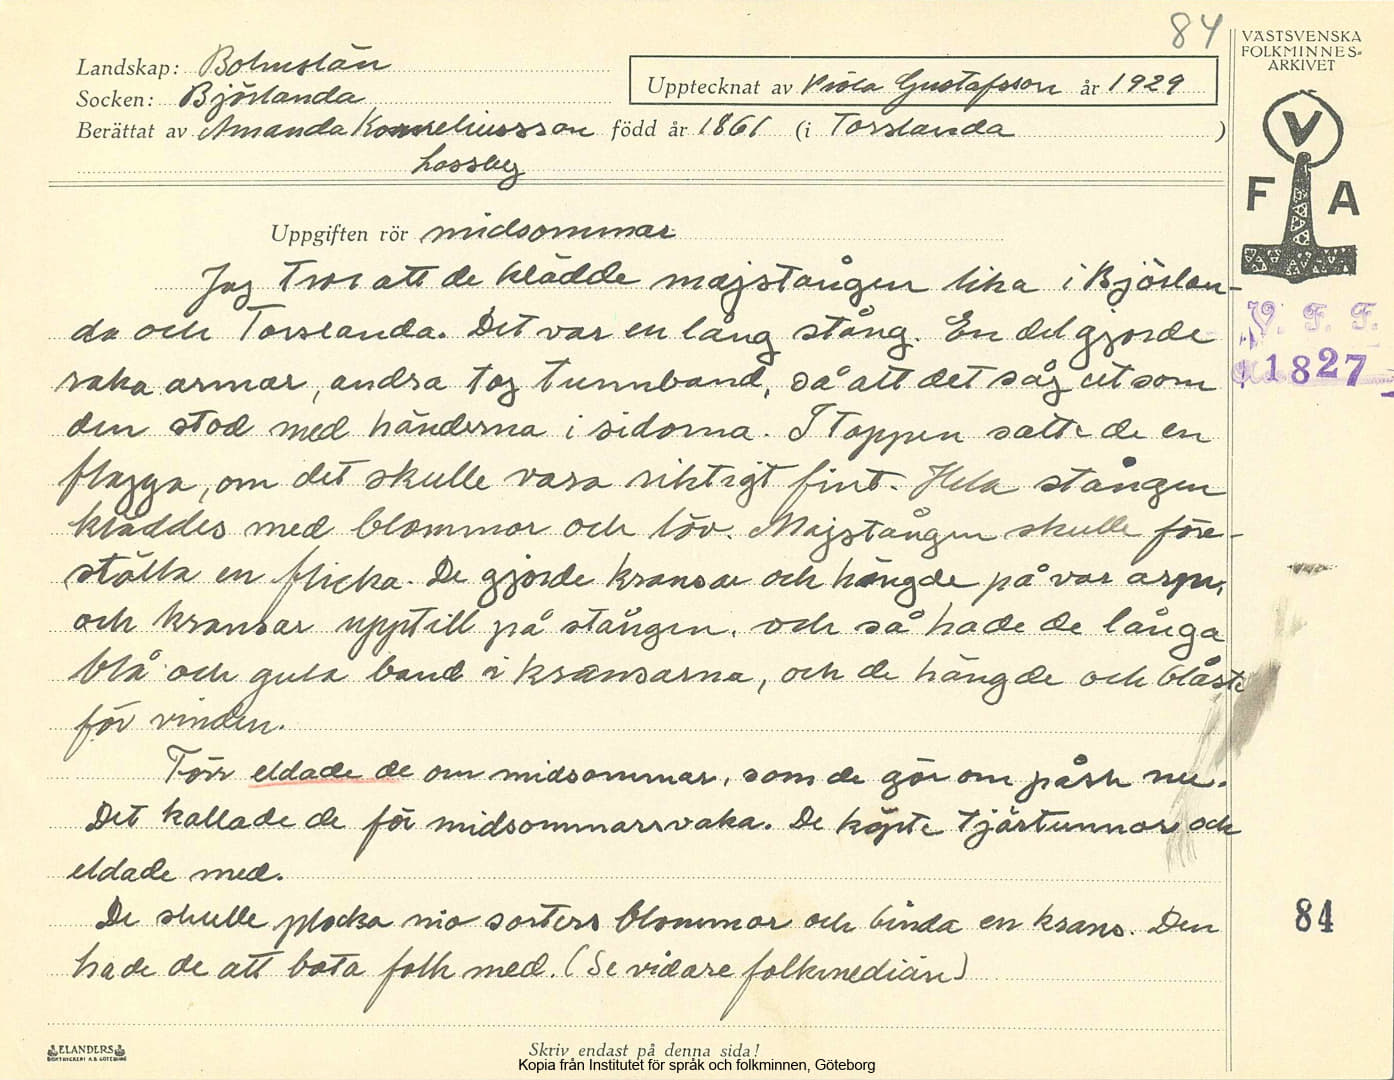 84
Landskap: Bohuslän
Socken: Björlanda
Upptecknat av Viola Gustafsson år 1929
Berättat av Amanda Korneliusson född år 1861 (i Torslanda )
Lossby
VÄSTSVENSKA
FOLKMINNES-
ARKIVET
V
F A
Uppgiften rör midsommar
Jag tror att de klädde majstången lika i Björlan-
da och Torslanda. Det var en lång stång. En del gjorde
raka armar, andra tog tunnband, så att det såg ut som
den stod med händerna i sidorna. I toppen satte de en
flagga, om det skulle vara riktigt fint. Hela stången
kläddes med blommor och löv. Majstången skulle före-
ställa en flicka. De gjorde kransar och hängde på var arm,
och kransar upptill på stången, och så hade de långa
blå och gula band i kransarna, och de hängde och blåste
för vinden.
Förr eldade de om midsommar, som de gör om påsk nu.
Det kallade de för midsommarsvaka. De köpte tjärtunnor och
eldade med.
De skulle plocka nio sorters blommor och binda en krans. Den
hade de att bota folk med. (Se vidare folkmedicin)
V. F. F.
1827
84
ELANDERS
BOKTRYCKERI A.B. GÖTEBORG
Skriv endast på denna sida!
Kopia från Institutet för språk och folkminnen, Göteborg